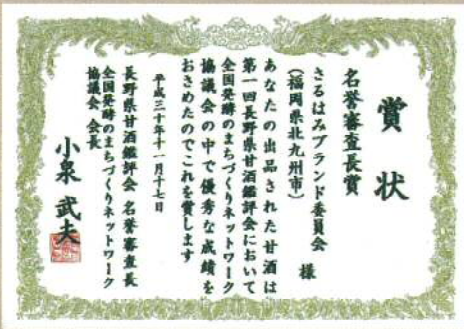 賞状
名誉審査長賞
さるはみブランド委員会 様
(福岡県北九州市)
あなたの出品された甘酒は
第一回長野県甘酒鑑評会において
全国発酵のまちづくりネットワーク
協議会の中で優秀な成績を
おさめたのでこれを賞します
平成三十年十一月十七日
長野県甘酒鑑評会 名誉審査長
全国発酵のまちづくりネットワーク
協議会 会長
小泉 武夫